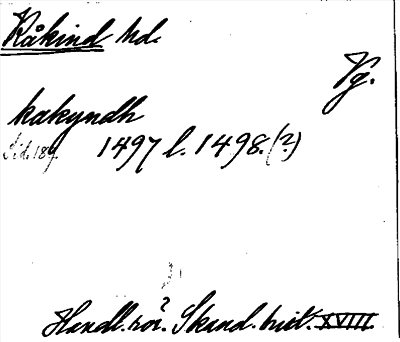 Råkind hd.
Vg.
kakyndh
Sid. 187. 1497 l. 1498. (?)
Handl. rör. Skand. hist. XVIII.